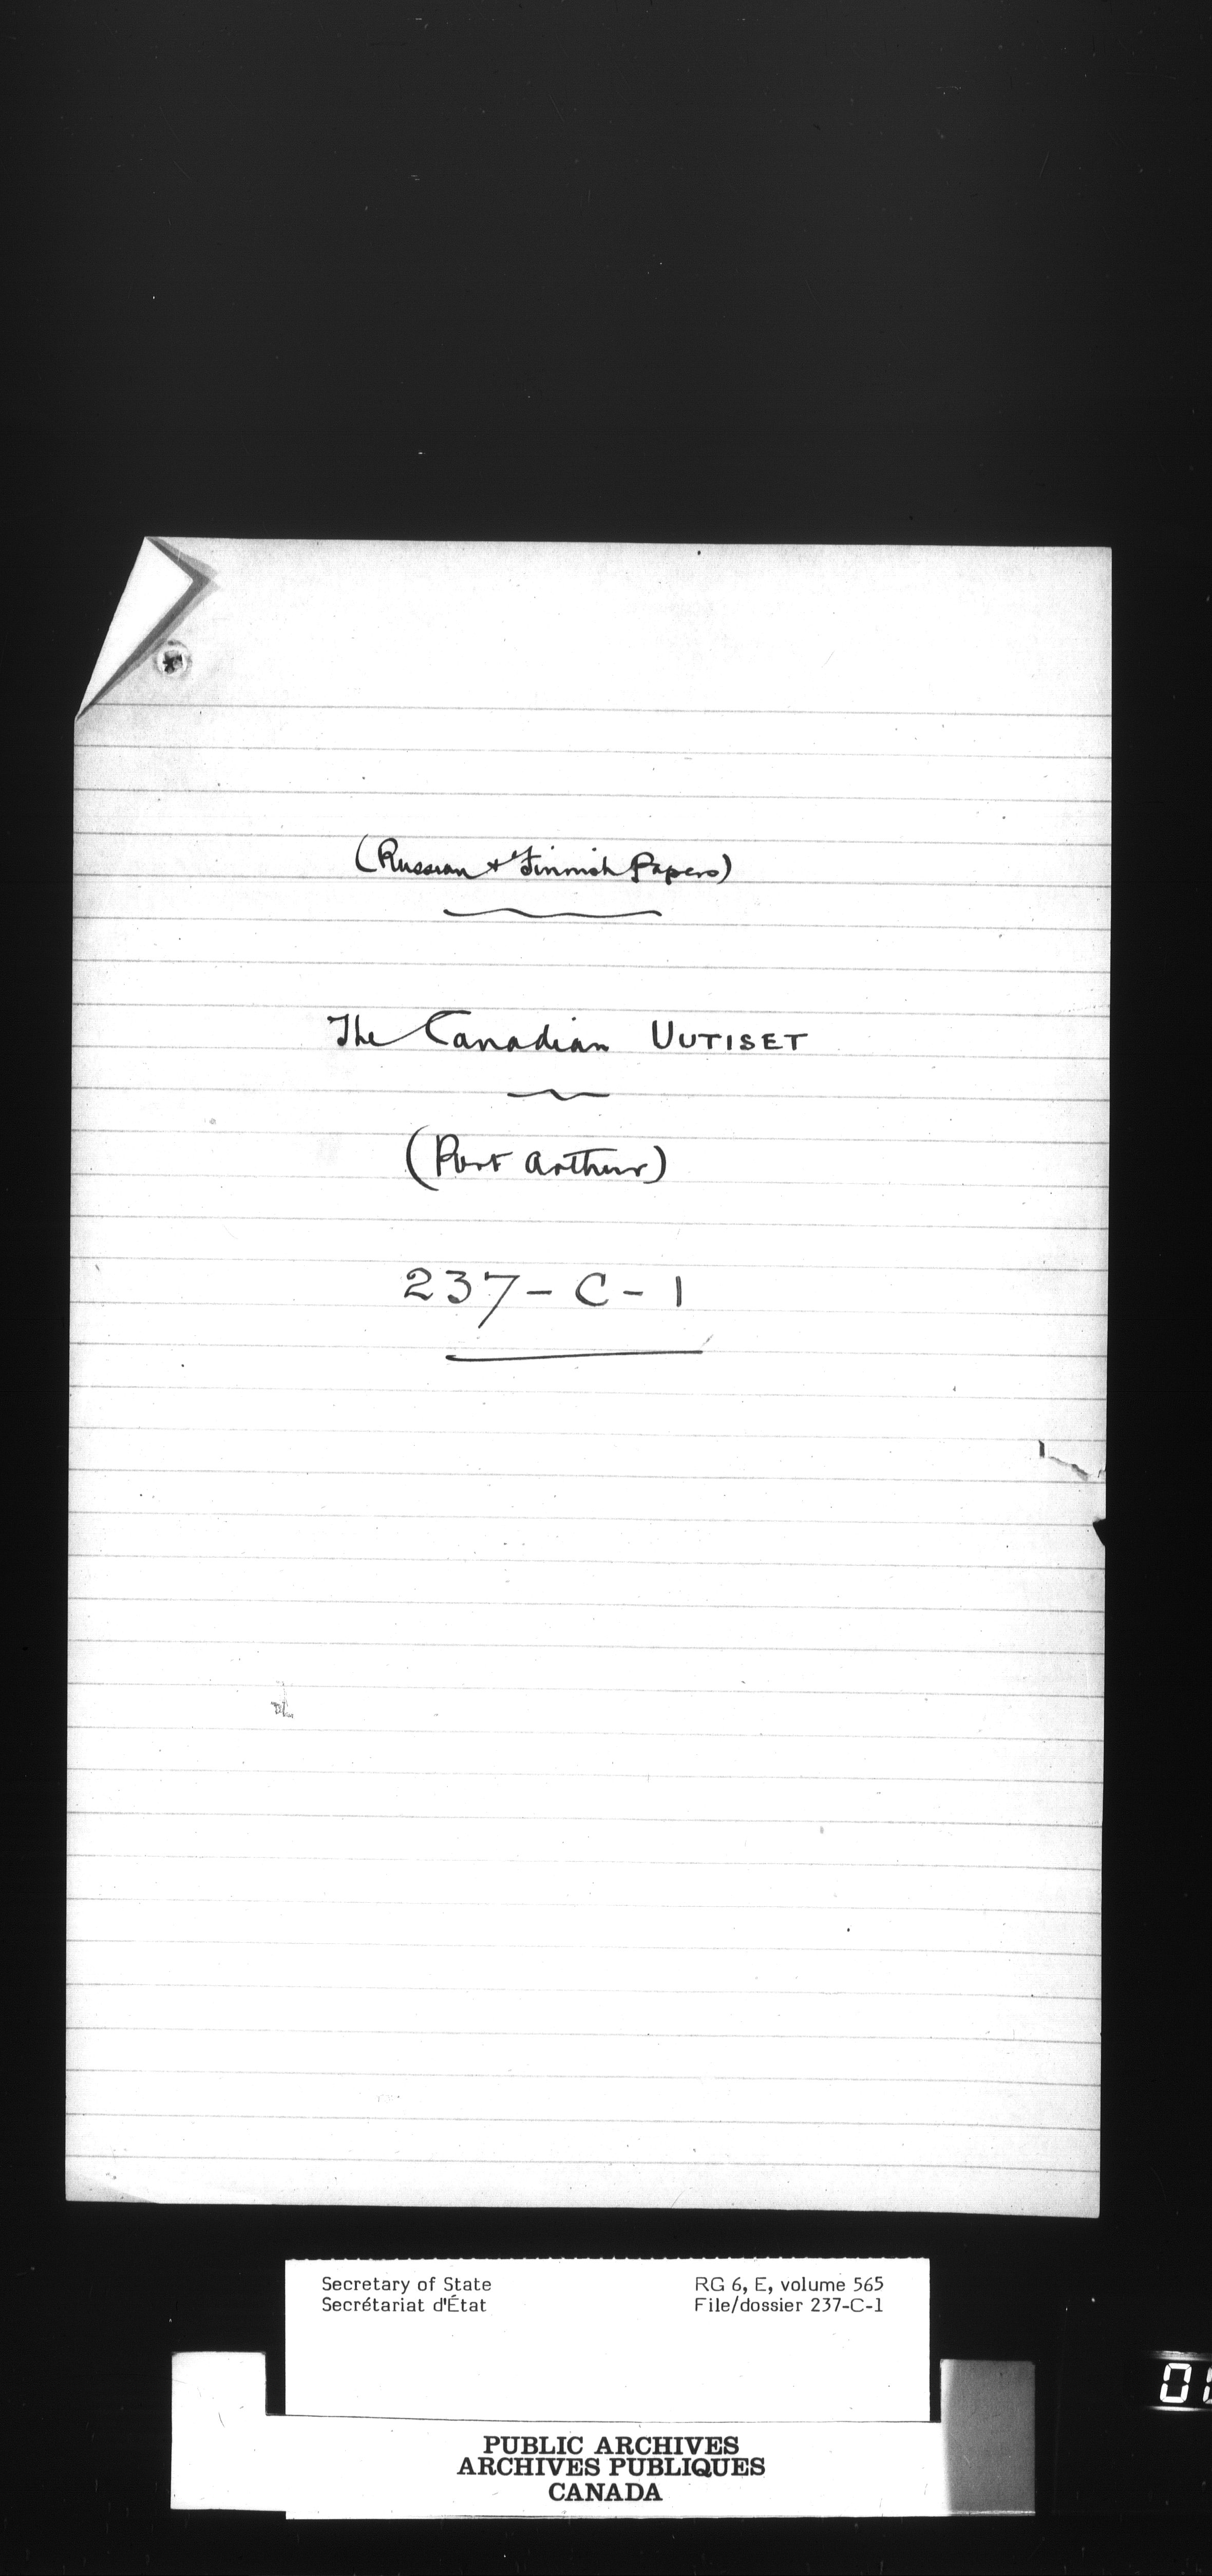 (Russian & Finnish Papers)
The Canadian UUTISET
(Port Arthur)
237-C-1
Secretary of State
Secrétariat d'État
RG 6, E, volume 565
File/dossier 237-C-1
PUBLIC ARCHIVES
ARCHIVES PUBLIQUES
CANADA